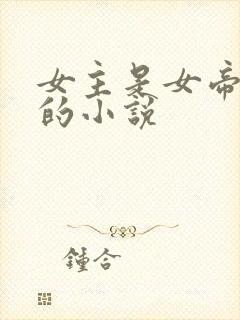 女主是女帝
的小說
鍾合